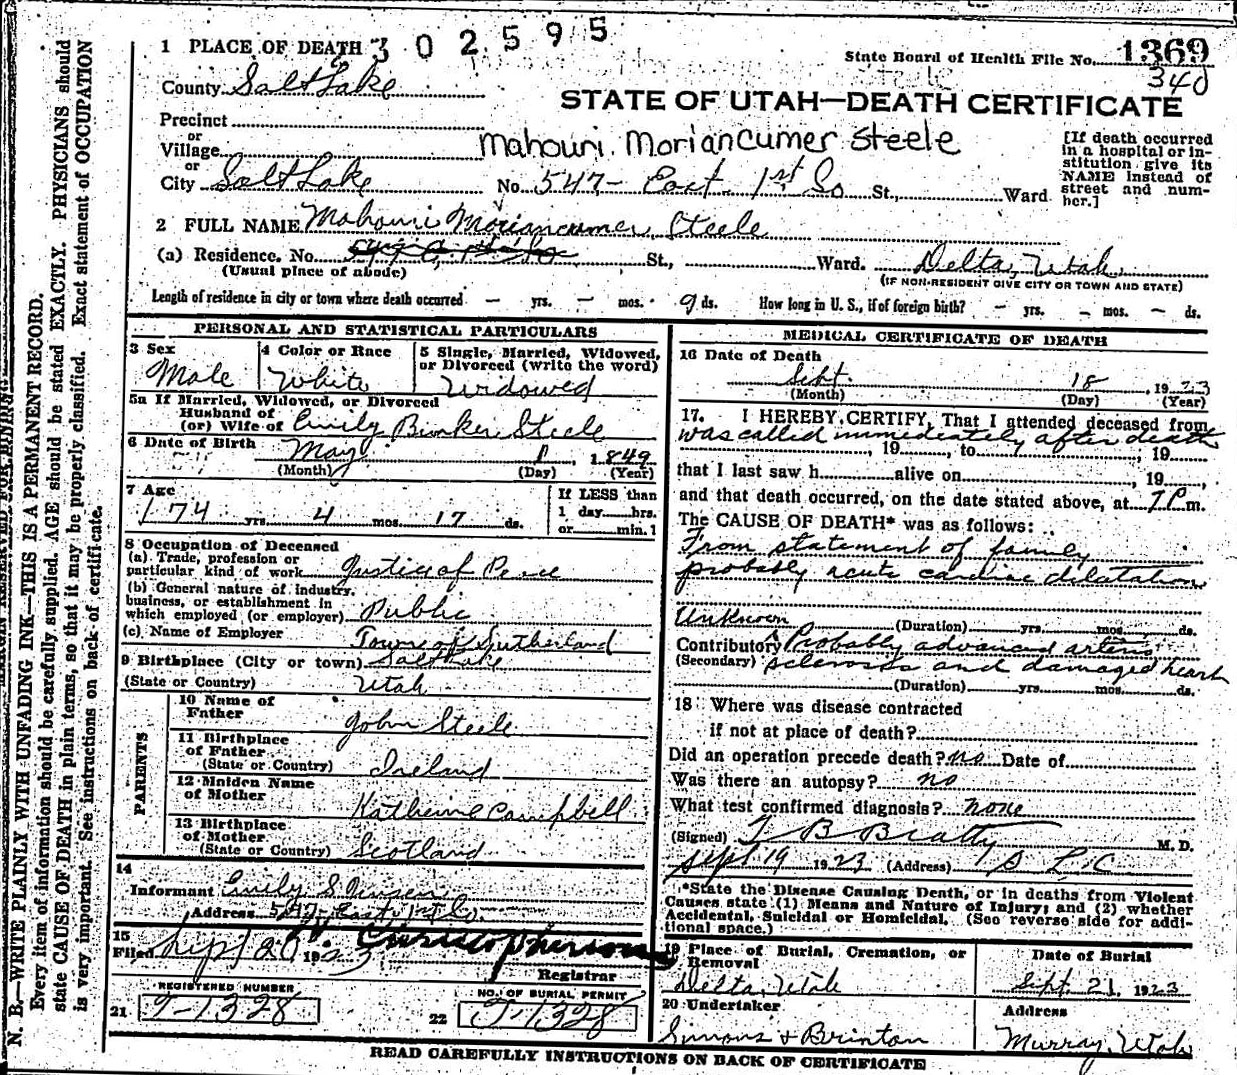 1 PLACE OF DEATH 302595
State Board of Health File No. 1369
County Salt Lake
340
STATE OF UTAH—DEATH CERTIFICATE
Precinct
or
Village
Mahonri Moriancumer Steele
or
City Salt Lake No. 547- East 1st So St., Ward
[If death occurred
in a hospital or in-
stitution give its
NAME instead of
street and num-
ber.]
2 FULL NAME Mahonri Moriancumer Steele
(a) Residence. No. St., Ward. Delta, Utah
(Usual place of abode)
(IF NON-RESIDENT GIVE CITY OR TOWN AND STATE)
Length of residence in city or town where death occurred - yrs. - mos. 9 ds. How long in U. S., if of foreign birth? - yrs. - mos. - ds.
PERSONAL AND STATISTICAL PARTICULARS
3 Sex
Male
4 Color or Race
White
5 Single, Married, Widowed,
or Divorced (write the word)
Widowed
5a If Married, Widowed, or Divorced
Husband of
(or) Wife of Emily Bunker Steele
6 Date of Birth May 1 1849
(Month) (Day) (Year)
7 Age
74 yrs. 4 mos. 17 ds.
If LESS than
1 day hrs.
or min.
8 Occupation of Deceased
(a) Trade, profession or
particular kind of work Justice of Peace
(b) General nature of industry,
business, or establishment in
which employed (or employer) Public
(c) Name of Employer Town of Sutherland
9 Birthplace (City or town) Salt Lake
(State or Country) Utah
PARENTS
10 Name of
Father John Steele
11 Birthplace
of Father
(State or Country) Ireland
12 Maiden Name
of Mother Katherine Campbell
13 Birthplace
of Mother
(State or Country) Scotland
14
Informant Emily S. Jensen
Address 547 East 1st So
15
Filed Sept 20 1923 Christopherson
Registrar
REGISTERED NUMBER
21 T-1328
NO. OF BURIAL PERMIT
22 T-1328
MEDICAL CERTIFICATE OF DEATH
16 Date of Death
Sept. 18, 1923
(Month) (Day) (Year)
17. I HEREBY CERTIFY, That I attended deceased from
was called immediately after death
, 19, to, 19
that I last saw h alive on, 19,
and that death occurred, on the date stated above, at 7 P m.
The CAUSE OF DEATH* was as follows:
From statement of family
probably acute cardiac dilatation
Unknown (Duration) yrs. mos. ds.
Contributory Probably advanced arterio
(Secondary) sclerosis and damaged heart
(Duration) yrs. mos. ds.
18 Where was disease contracted
if not at place of death?
Did an operation precede death? no Date of
Was there an autopsy? no
What test confirmed diagnosis? none
(Signed) T B Beatty M. D.
Sept 19 1923 (Address) S L C
*State the Disease Causing Death, or in deaths from Violent
Causes state (1) Means and Nature of Injury; and (2) whether
Accidental, Suicidal or Homicidal. (See reverse side for addi-
tional space.)
19 Place of Burial, Cremation, or
Removal
Delta, Utah
Date of Burial
Sept. 21 1923
20 Undertaker
Simons & Brinton
Address
Murray, Utah
READ CAREFULLY INSTRUCTIONS ON BACK OF CERTIFICATE
N. B.—WRITE PLAINLY WITH UNFADING INK—THIS IS A PERMANENT RECORD.
Every item of information should be carefully supplied. AGE should be stated EXACTLY. PHYSICIANS should
state CAUSE OF DEATH in plain terms, so that it may be properly classified. Exact statement of OCCUPATION
is very important. See instructions on back of certificate.